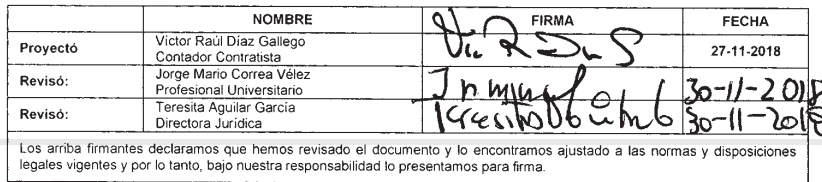 NOMBRE FIRMA FECHA
Proyectó Victor Raúl Díaz Gallego
Contador Contratista 27-11-2018
Revisó: Jorge Mario Correa Vélez
Profesional Universitario 30-11-2018
Revisó: Teresita Aguilar García
Directora Jurídica 30-11-2018
Los arriba firmantes declaramos que hemos revisado el documento y lo encontramos ajustado a las normas y disposiciones
legales vigentes y por lo tanto, bajo nuestra responsabilidad lo presentamos para firma.